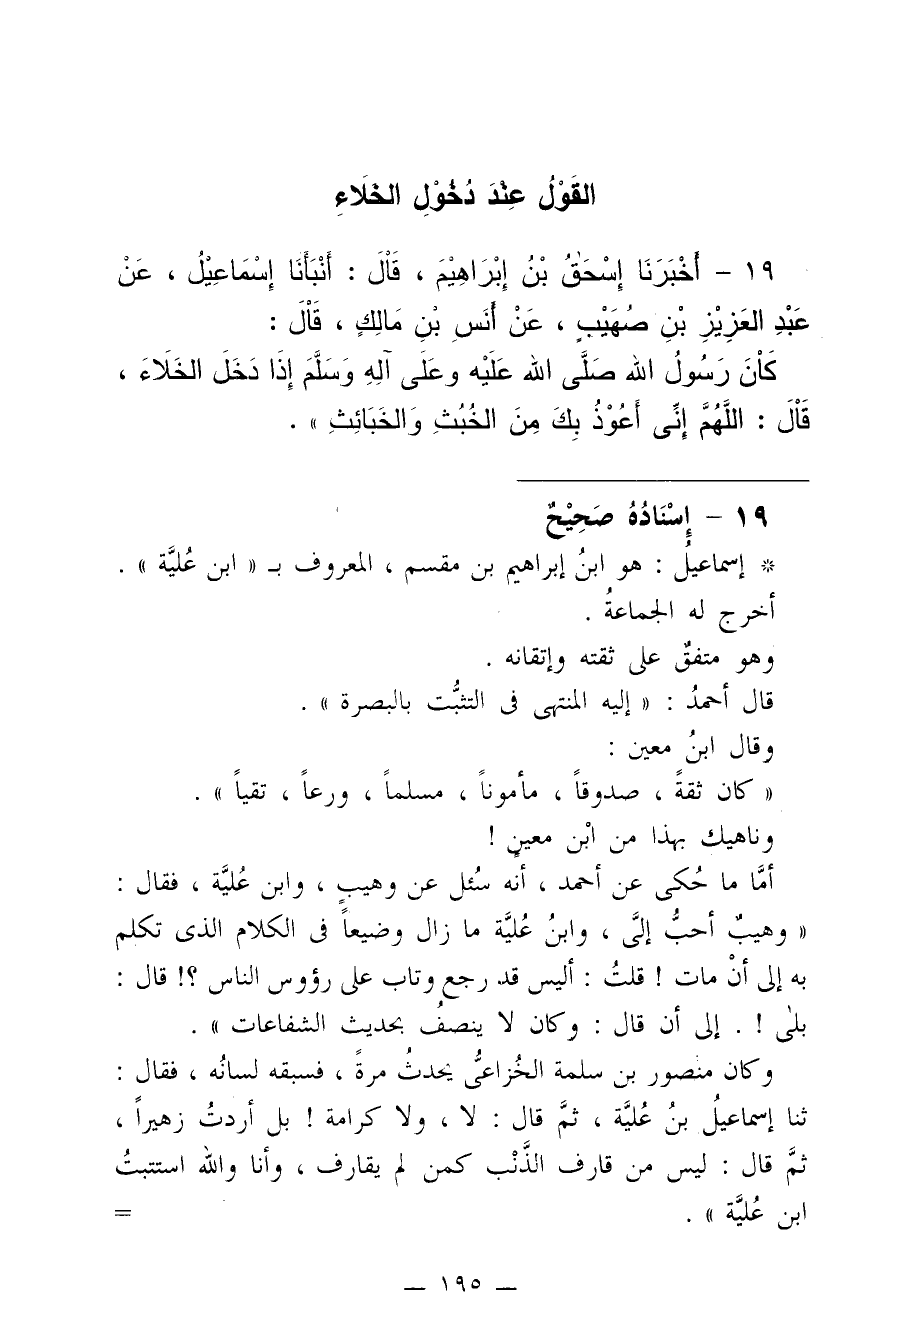 القَوْلُ عِنْدَ دُخُوْلِ الخَلَاءِ
١٩ – أَخْبَرَنَا إِسْحَقُ بْنُ إِبْرَاهِيْمَ ، قَاْلَ : أَنْبَأَنَا إِسْمَاعِيْلُ ، عَنْ
عَبْدِ العَزِيْزِ بْنِ صُهَيْبٍ ، عَنْ أَنَسِ بْنِ مَالِكٍ ، قَاْلَ :
كَاْنَ رَسُولُ الله صَلَّى الله عَلَيْه وعَلَى آلِهِ وَسَلَّمَ إِذَا دَخَلَ الخَلَاءَ ،
قَاْلَ : اللَّهُمَّ إِنِّى أَعُوْذُ بِكَ مِنَ الخُبُثِ وَالخَبَائِثِ » .
١٩ – إِسْنَادُهُ صَحِيْحٌ
* إسماعيلُ : هو ابنُ إبراهيم بن مقسم ، المعروف بـ « ابن عُليَّة » .
أخرج له الجماعةُ .
وهو متفقٌ على ثقته وإتقانه .
قال أحمدُ : « إليه المنتهى فى التثبُّت بالبصرة » .
وقال ابنُ معين :
« كان ثقةً ، صدوقاً ، مأموناً ، مسلماً ، ورعاً ، تقياً » .
وناهيك بهذا من ابْن معينٍ !
أمَّا ما حُكى عن أحمد ، أنه سُئل عن وهيبٍ ، وابن عُليَّة ، فقال :
« وهيبٌ أحبُّ إلىَّ ، وابنُ عُليَّة ما زال وضيعاً فى الكلام الذى تكلم
به إلى أنْ مات ! قلتُ : أليس قد رجع وتاب على رؤوس الناس ؟! قال :
بلىٰ ! . إلى أن قال : وكان لا ينصفُ بحديث الشفاعات » .
وكان منصور بن سلمة الخُزاعىُّ يحدثُ مرةً ، فسبقه لسانُه ، فقال :
ثنا إسماعيلُ بنُ عُليَّة ، ثمَّ قال : لا ، ولا كرامة ! بل أردتُ زهيراً ،
ثمَّ قال : ليس من قارف الذَّنْب كمن لم يقارف ، وأنا والله استتبتُ
ابن عُليَّة » . =
— ١٩٥ —